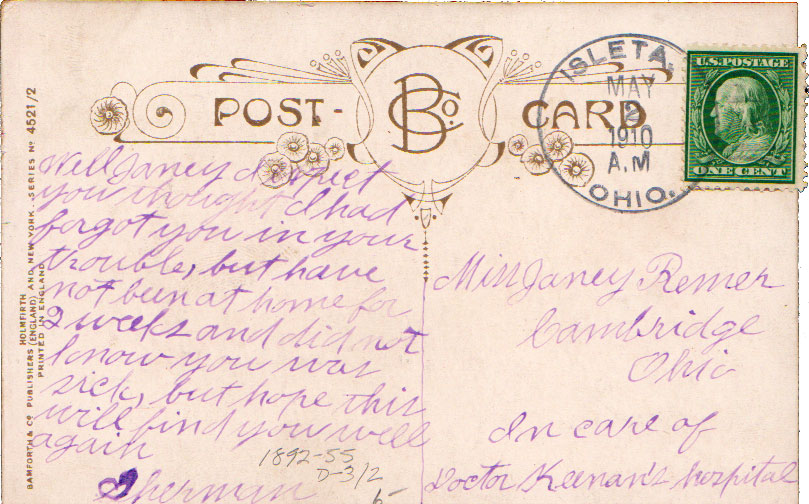 POST- B Co. CARD
ISLETA.
MAY
2
1910
A.M
OHIO.
U.S. POSTAGE
ONE CENT
Well Janey I expect
you thought I had
forgot you in your
trouble, but have
not been at home for
2 weeks and did not
know you was
sick, but hope this
will find you well
again
Sherman
1892-55
D-3/2
Miss Janey Remer
Cambridge
Ohio
In care of
Doctor Keenan's hospital
BAMFORTH & Co PUBLISHERS (ENGLAND) AND NEW YORK. SERIES No 4521/2
HOLMFIRTH
PRINTED IN ENGLAND